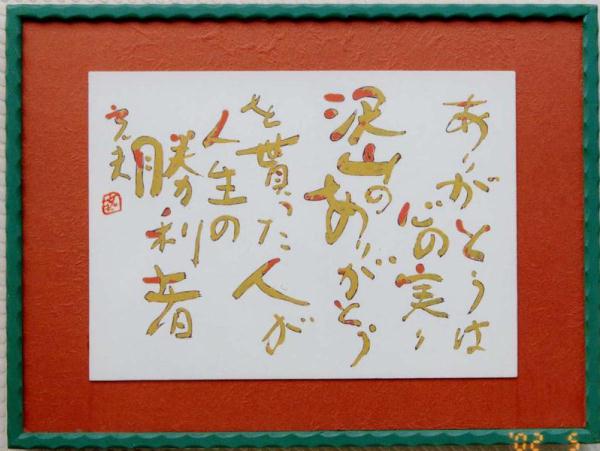 ありがとうは
心の実り
沢山の
ありがとう
を貰った人が
人生の
勝利者
'02 5